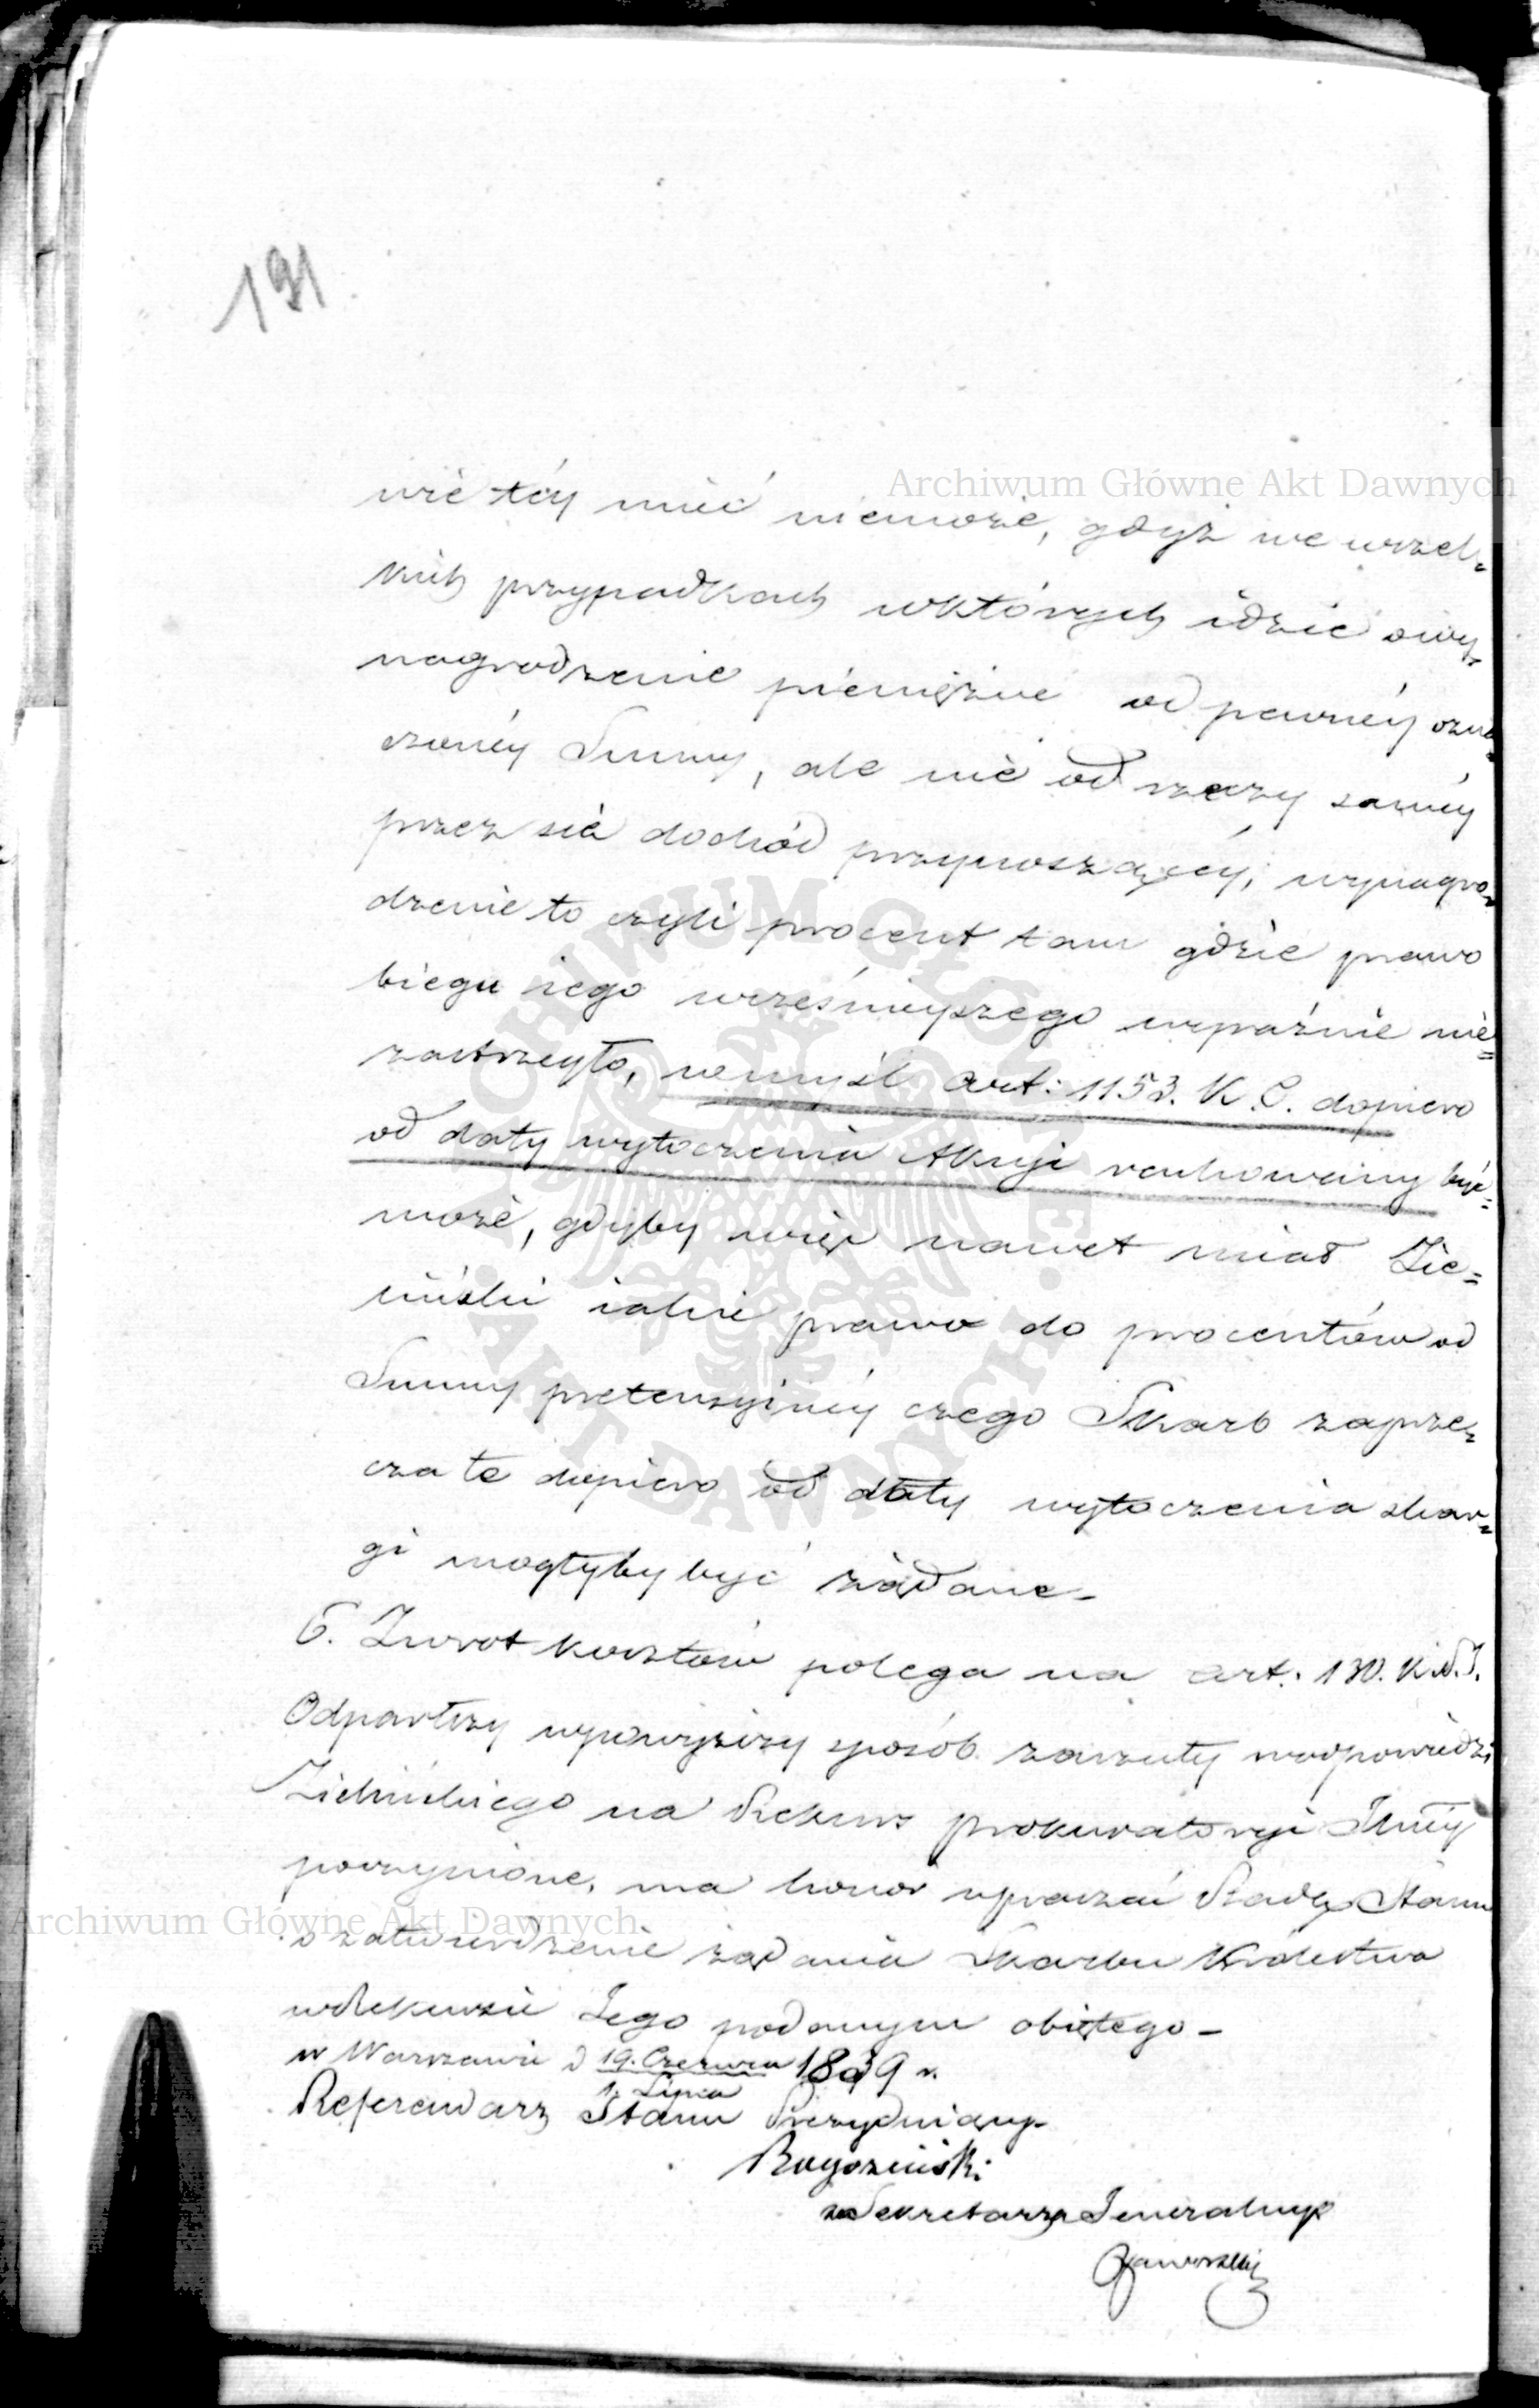 191
Archiwum Główne Akt Dawnych
nie téy mieć niemoże, gdyż we wszel=
kich przypadkach wktórych idzie owy=
nagrodzenie pieniężne od pewnéy ozna=
czonéy Summy, ale nie od rzeczy saméy
przez sie dochód przynoszącéy, wynagro=
dzenie to czyli procent tam gdzie prawo
biegu iego wcześnieyszego wyraźnie nie=
zastrzegło, wmyśl art: 1153. K.C. dopiero
od daty wytoczenia Akcyi rachowany być=
może, gdyby więc nawet miał Zie=
liński iakie prawo do procentów od
Summy pretensyinéy czego Skarb zaprze=
cza te dopiero od daty wytoczenia skar=
gi mogłyby być żądane-
6. Zwrot kosztów polega na art: 130. K.P.S.
Odpartszy wpowyższy sposób zarzuty wodpowiedzi
Zielińskiego na Rekurs prokuratoryi Jlnéy
poczynione, ma honor upraszać Radę Stanu
Archiwum Główne Akt Dawnych
o zatwierdzenie żądania Skarbu Królestwa
wRekursie Jego podanym obiętego-
w Warszawie d 19. Czerwca 1839 r.
1. Lipca
Referendarz Stanu Prezyduiący
Rogoziński
za Sekretarza Jeneralnego
Jaworski
ARCHIWUM GŁÓWNE AKT DAWNYCH